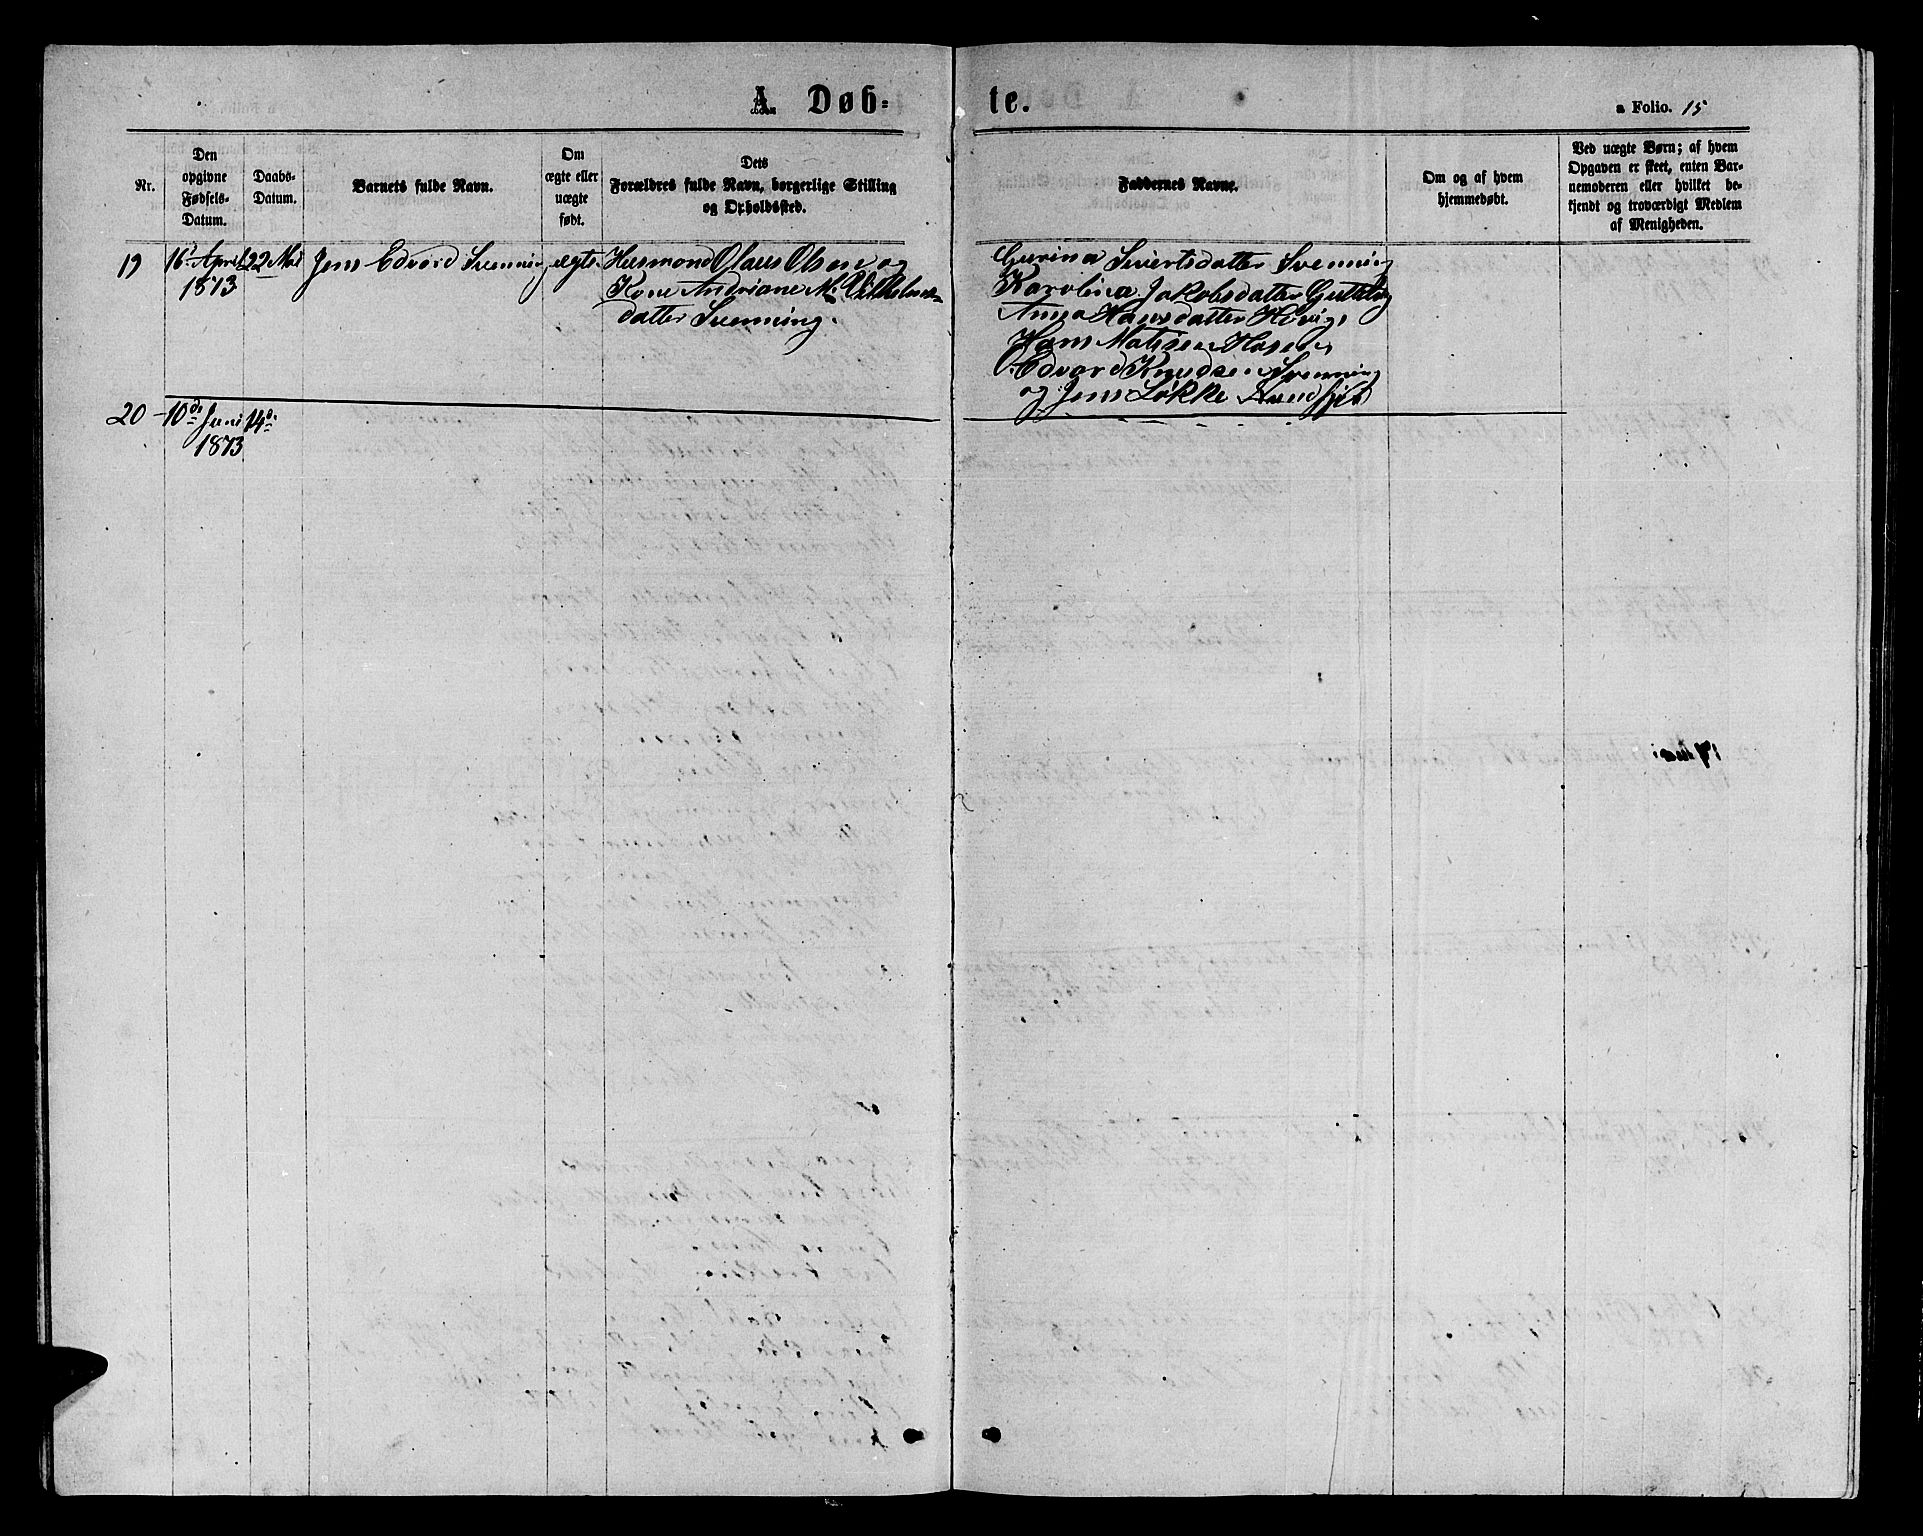 A. Døb-
te.
a Folio. 15
Nr.
Den
opgivne
Fødsels-
Datum.
Daabs-
Datum.
Barnets fulde Navn.
Om
ægte eller
uægte
født.
Dets
Forældres fulde Navn, borgerlige Stilling
og Opholdssted.
Faddernes Navne.
Om og af hvem
hjemmedøbt.
Ved uægte Børn; af hvem
Opgaven er skeet, enten Bar-
nemoderen eller hvilket be-
kjendt og troværdigt Medlem
af Menigheden.
19 16 April 22 Mai Jens Edvard Svenning ægte Husmand Olaus Olsen og
1873 Kone Andriane M. Vilhelms-
datter Svenning.
Gurina Sivertsdatter Svenning
Karolina Jakobsdatter
Anna Hansdatter
Hans Matisen
Edvard Knudsen Svenning
og Jens Løkke
20 10de Juni 14de
1873